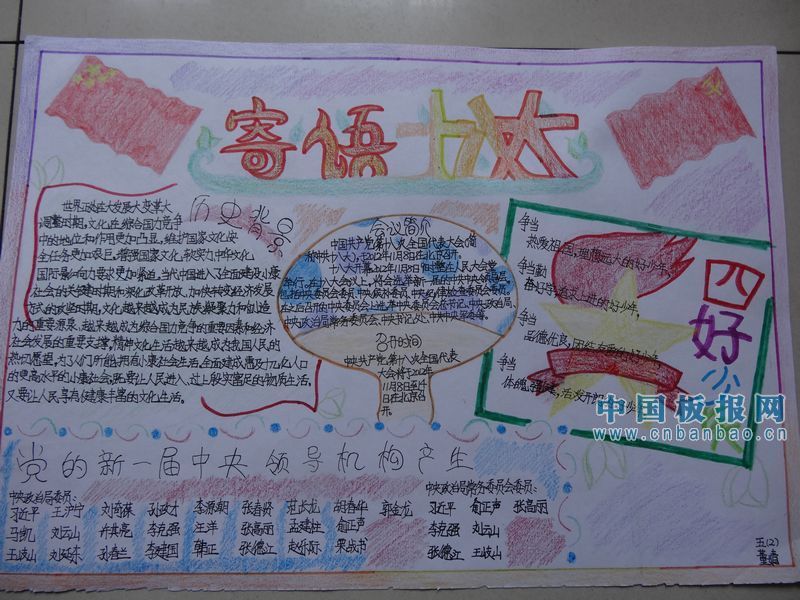 寄语十八大
历史背景
世界正处在大发展大变革大
调整时期,文化在综合国力竞争
中的地位和作用更加凸显,维护国家文化安
全任务更加艰巨,增强国家文化软实力中华文化
国际影响力要求更加紧迫,当代中国进入了全面建设小康
社会的关键时期和深化改革开放、加快转变经济发展
方式的攻坚时期,文化越来越成为民族凝聚力和创造
力的重要源泉、越来越成为综合国力竞争的重要因素和经济
社会发展的重要支撑,精神文化生活越来越成为我国人民的
热切愿望,为了人们所能拥有小康社会生活,全面建成惠及十几亿人口
的更高水平的小康社会,既要让人民进入,过上殷实富足的物质生活,
又要让人民享有健康丰富的文化生活。
会议简介
中国共产党第十八次全国代表大会(简
称中共十八大),于2012年11月8日在北京召开。
召开时间
中央共产党第十八次全国代表
大会将于2012年
11月8日至14
日在北京召
开。
四好少
争当
热爱祖国,理想远大的好少年,
争当勤
奋好学,追求上进的好少年,
争当
品德优良,团结友爱的好少年
争当
体魄强健,活泼开朗
中国板报网
www.cnbanbao.cn
党的新一届中央领导机构产生
中央政治局委员:
习近平 王沪宁 刘奇葆 孙政才 李源朝 张春贤 范长龙 胡春华 郭金龙
马凯 刘云山 许其亮 李克强 汪洋 张高丽 孟建柱 俞正声
王岐山 刘延东 孙春兰 李建国 韩正 张德江 赵乐际 栗战书
中央政治局常务委员会委员:
习近平 俞正声 张高丽
李克强 刘云山
张德江 王岐山
五(2)